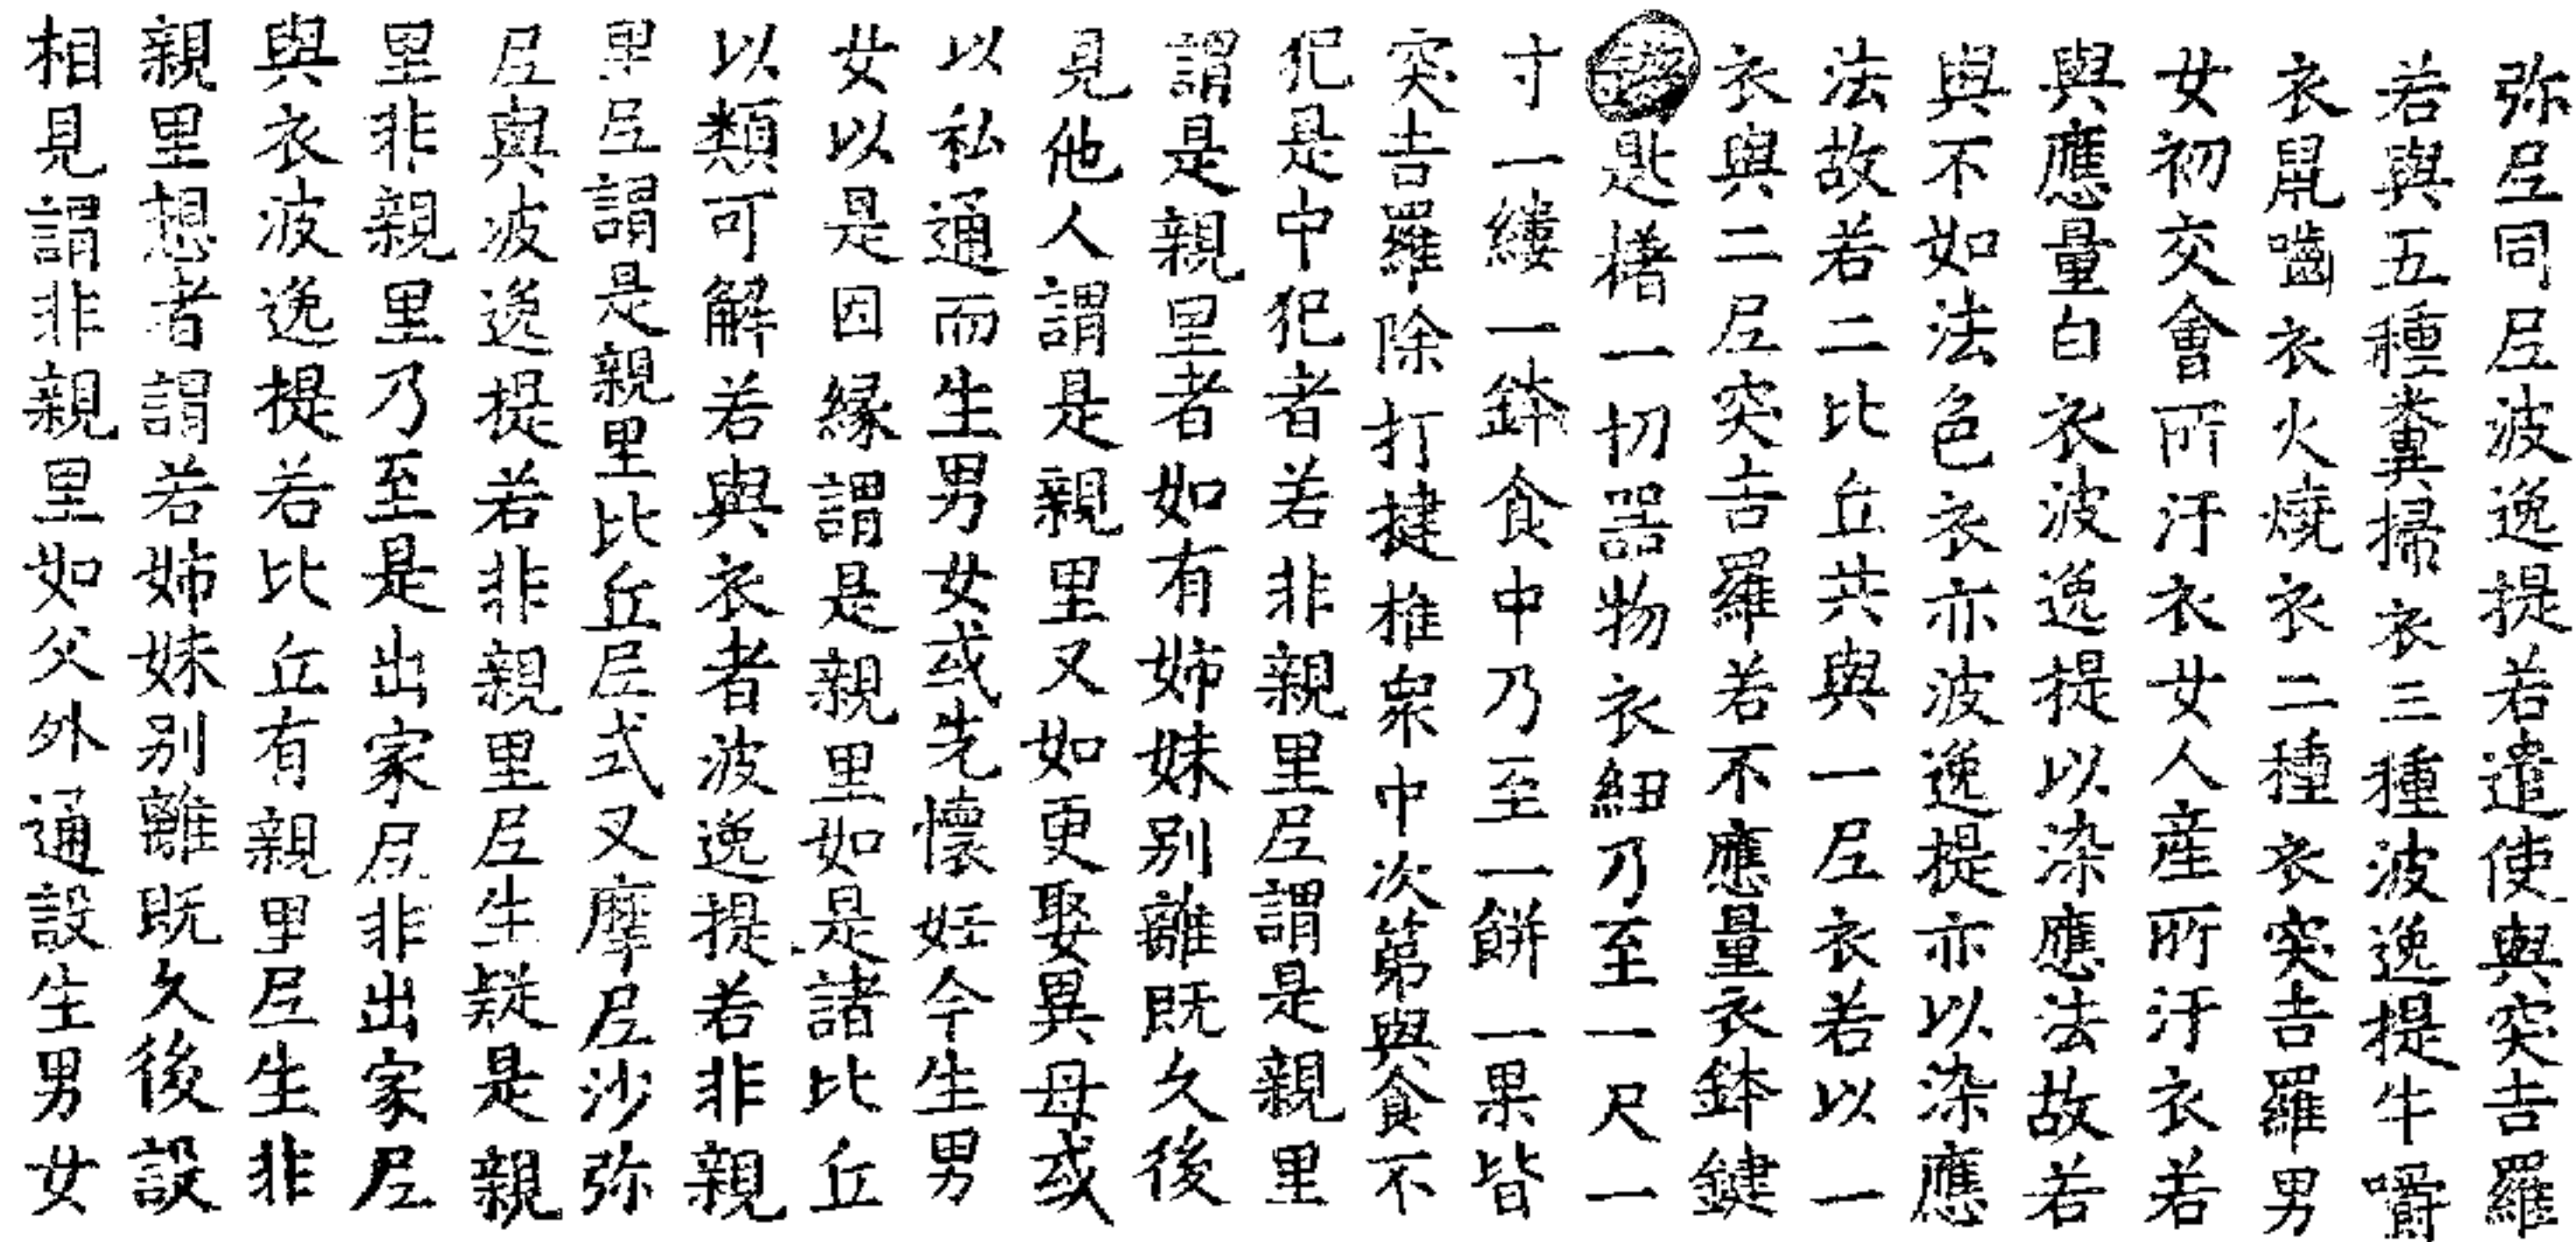 弥尼同尼波逸提若遣使與突吉羅
若與五種糞掃衣三種波逸提牛嚼
衣鼠嚙衣火燒衣二種衣突吉羅男
女初交會所汙衣女人産所汙衣若
與應量白衣波逸提以染應法故若
與不如法色衣亦波逸提亦以染應
法故若二比丘共與一尼衣若以一
衣與二尼突吉羅若不應量衣鉢鍵
匙楮一切器物衣紐乃至一尺一
寸一縷一鉢食中乃至一餅一果皆
突吉羅除打揵椎衆中次第與食不
犯是中犯者若非親里尼謂是親里
謂是親里者如有姊妹別離既久後
見他人謂是親里又如更娶異母或
以私通而生男女或先懷妊今生男
女以是因緣謂是親里如是諸比丘
以類可解若與衣者波逸提若非親
里尼謂是親里比丘尼式叉摩尼沙弥
尼與波逸提若非親里尼生疑是親
里非親里乃至是出家尼非出家尼
與衣波逸提若比丘有親里尼生非
親里想者謂若姊妹別離既久後設
相見謂非親里如父外通設生男女